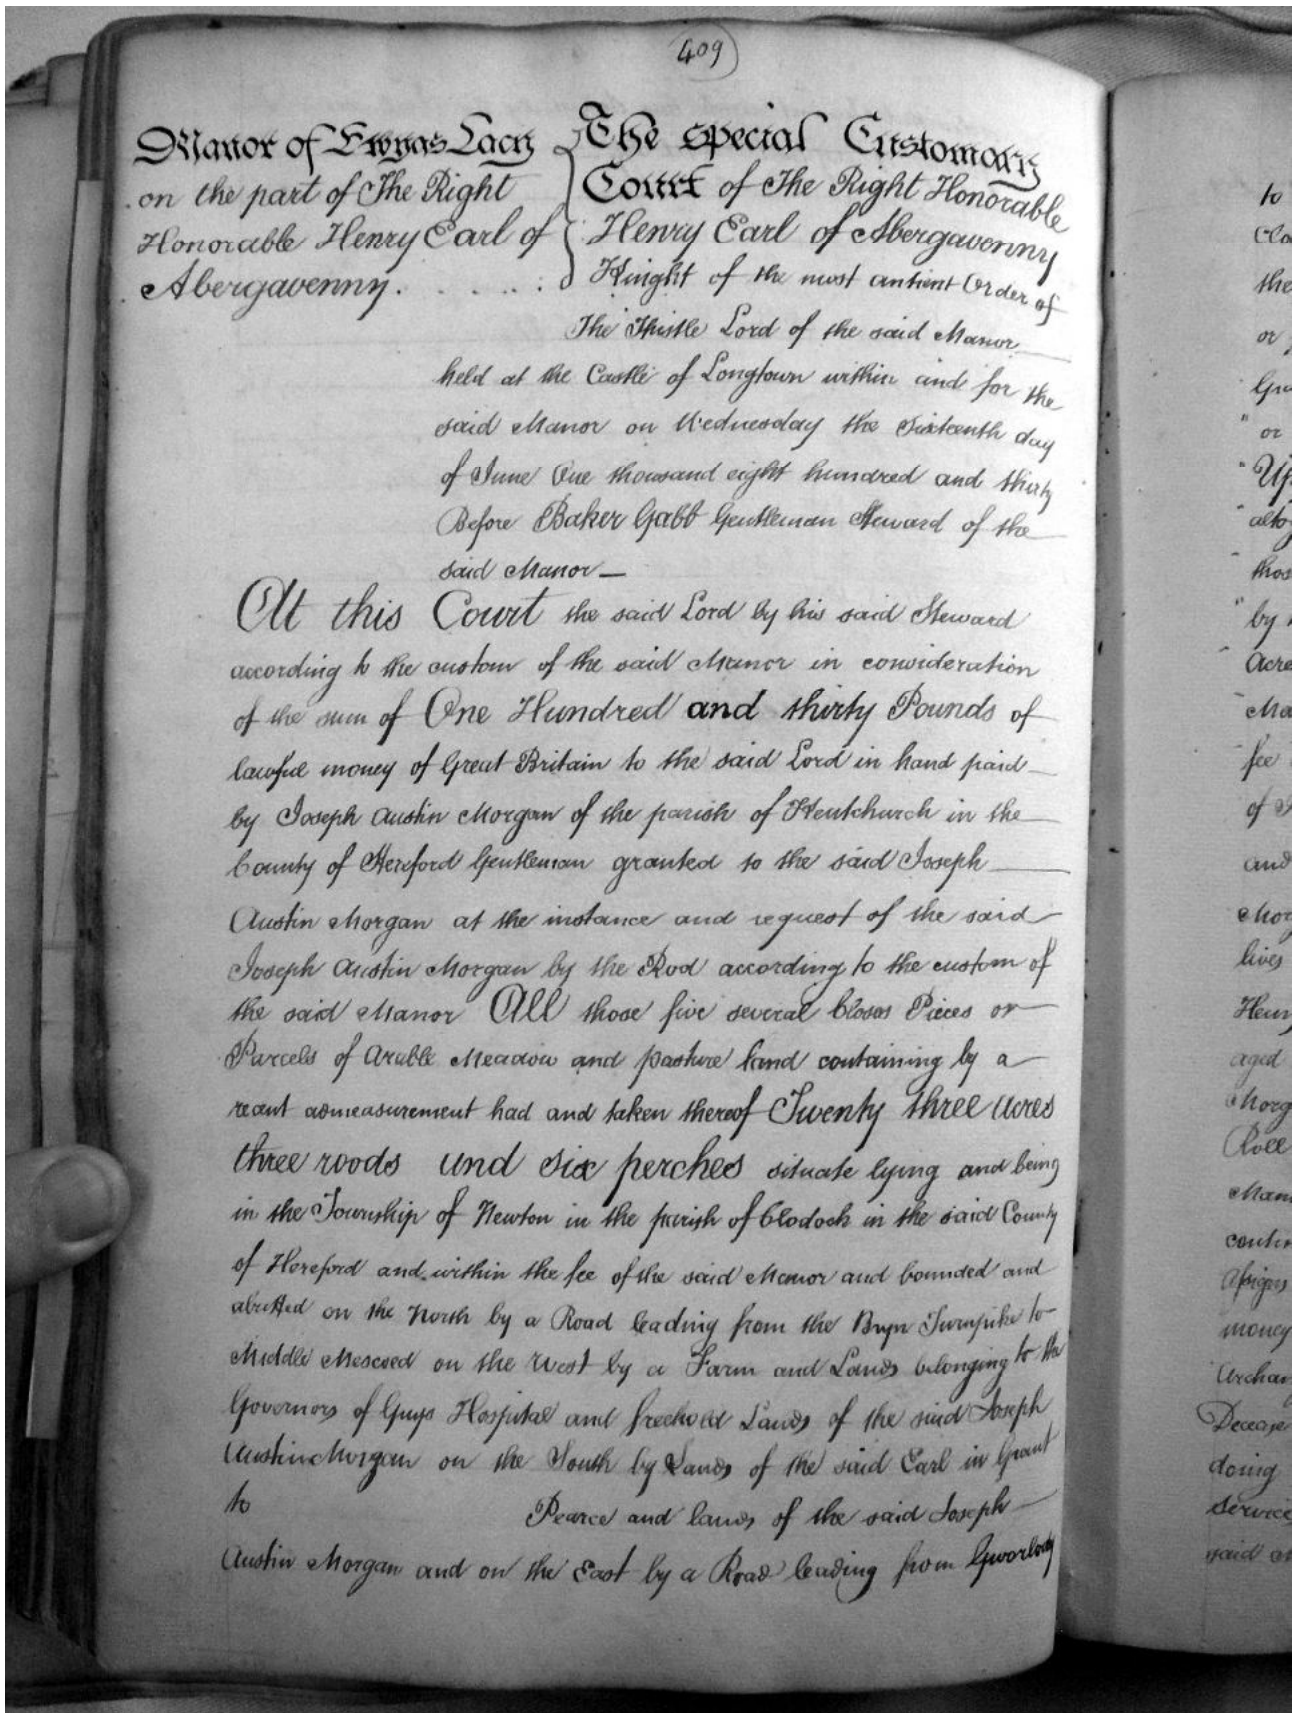 409
Manor of Ewyas Lacy
on the part of The Right
Honorable Henry Earl of
Abergavenny. . . . . . :
The special Customary
Court of The Right Honorable
Henry Earl of Abergavenny
Knight of the most antient Order of
The Thistle Lord of the said Manor
held at the Castle of Longtown within and for the
said Manor on Wednesday the Sixteenth day
of June One thousand eight hundred and thirty
Before Baker Gabb Gentleman Steward of the
said Manor —
At this Court the said Lord by his said Steward
according to the custom of the said Manor in consideration
of the sum of One Hundred and thirty Pounds of
lawful money of Great Britain to the said Lord in hand paid
by Joseph Austin Morgan of the parish of Kentchurch in the
County of Hereford Gentleman granted to the said Joseph
Austin Morgan at the instance and request of the said
Joseph Austin Morgan by the Rod according to the custom of
the said Manor All those five several Closes Pieces or
Parcels of Arable Meadow and pasture land containing by a
recent admeasurement had and taken thereof Twenty three acres
three roods and six perches situate lying and being
in the Township of Newton in the parish of Clodock in the said County
of Hereford and within the fee of the said Manor and bounded and
abutted on the North by a Road leading from the Bryn Turnpike to
Middle Mescoed on the West by a Farm and Lands belonging to the
Governors of Guys Hospital and freehold Lands of the said Joseph
Austin Morgan on the South by Lands of the said Earl in Grant
to Pearce and lands of the said Joseph
Austin Morgan and on the East by a Road leading from Gworlody
to
the
or
" or
by
Acre
fee
and
lives
aged
Roll
money
Decease
doing
Service
said